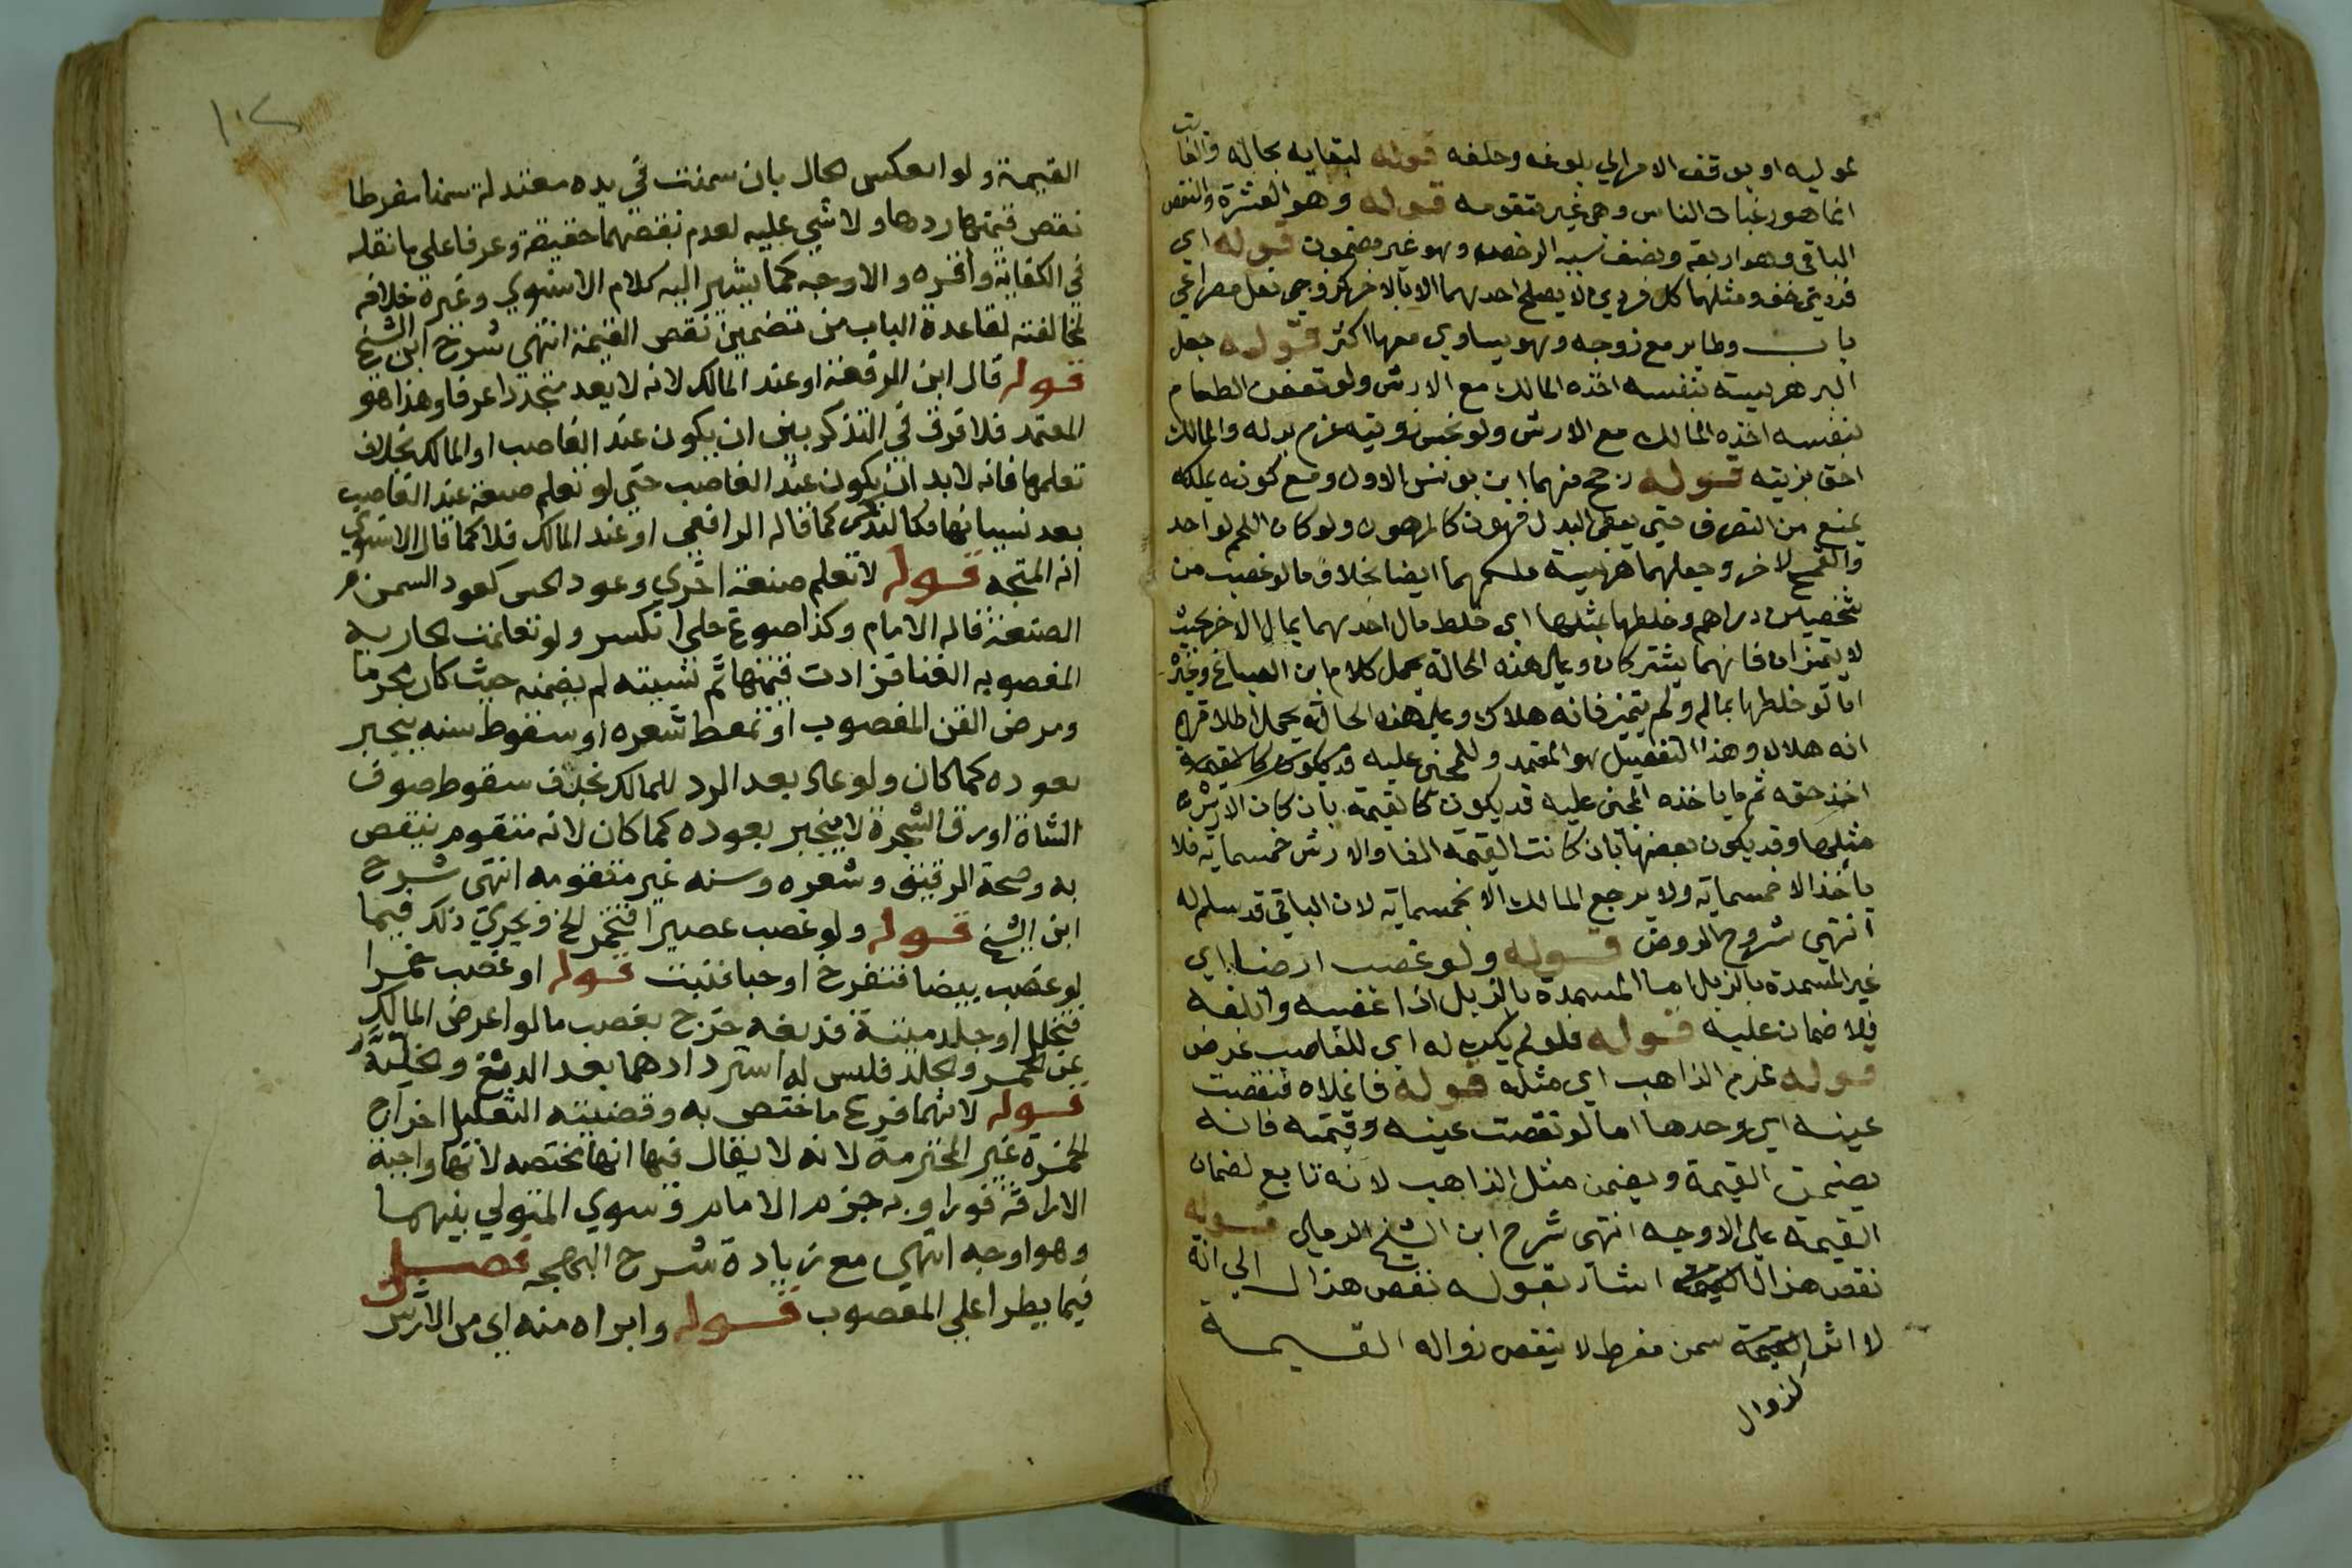 لموليه او يوقف الامر الي بلوغه وحلفه قوله لبقايه بحاله والفايت
انما هو رغبات الناس وهي غير متقومه قوله وهو العشرة والنقص
الباقي وهو اربعة ونصف سببه الرخص وهو غير مضمون قوله اي
فردتي خف ومثلهما كل فردين لا يصلح احدهما الا بالاخر كزوجي نعل ومصراعي
باب وطاير مع زوجه وهو يساوي معها اكثر قوله جعل
البر هريسة بنفسه اخذه المالك مع الارش ولو تعفن الطعام
بنفسه اخذه المالك مع الارش ولو نجس زيته غرم بدله والمالك
احق بزيته قوله رجح منهما ابن يونس الاول ومع كونه يملكه
يمنع من التصرف حتي يعطي البدل فهو كالمرهون ولو كان اللحم لواحد
والقمح لاخر وجعلهما هريسة ملكهما ايضا بخلاف ما لو غصب من
شخصين دراهم وخلطها بمثلها اي خلط مال احدهما بمال الاخر بحيث
لا يتميزان فانهما يشتركان وعلي هذه الحالة يحمل كلام ابن الصباغ وغيره
اما لو خلطها بماله ولم يتميز فانه هلاك وعلي هذه الحالة يحمل اطلاقهم
انه هلاك وهذا التفصيل هو المعتمد وللمجني عليه
اخذ حقه ثم ما ياخذه المجني عليه قد يكون كالقيمة بان كان الارش
مثلها وقد يكون بعضها بان كانت القيمة الفا والارش خمسماية فلا
ياخذ الا خمسماية ولا يرجع المالك الا بخمسماية لان الباقي قد سلم له
انتهي شروح الروض قوله ولو غصب ارضا اي
غير المسمدة بالزبل اما المسمدة بالزبل اذا غصبه واتلفه
فلا ضمان عليه قوله فلو لم يكن له اي للغاصب غرض
قوله غرم الذاهب اي مثله قوله فاغلاه فنقصت
عينه اي وحدها اما لو نقصت عينه وقيمته فانه
يضمن القيمة ويضمن مثل الذاهب لانه تابع لضمان
القيمة علي الاوجه انتهي شرح ابن الشيخ الرملي قوله
نقص هذا اشار بقوله نقص هذا الي انه
لا اثر لزوال سمن مفرط لا ينقص زواله القيمة
القيمة ولو انعكس الحال بان سمنت في يده معتدلة سمنا مفرطا
نقص قيمتها ردها ولا شي عليه لعدم نقصها حقيقة وعرفا علي ما نقله
في الكفاية واقره والاوجه كما يشير اليه كلام الاسنوي وغيره خلافه
لمخالفته لقاعدة الباب من تضمين نقص القيمة انتهي شرح ابن الشيخ
قوله قال ابن الرفعة او عند المالك لانه لا يعد متجددا عرفا وهذا هو
المعتمد فلا فرق في التذكر بين ان يكون عند الغاصب او المالك بخلاف
تعلمها فانه لا بد ان يكون عند الغاصب حتي لو تعلم صنعة عند الغاصب
بعد نسيانها فكالتذكر كما قاله الرافعي او عند المالك فلا كما قال الاسنوي
انه المتجه قوله لا تعلم صنعة اخري وعود الحسن كعود السمن لا
الصنعة قاله الامام وكذا صوغ حلي انكسر ولو تعلمت الجارية
المغصوبه الغنا فزادت قيمتها ثم نسيته لم يضمنه حيث كان محرما
ومرض القن المغصوب او تمعط شعره او سقوط سنه ينجبر
بعوده كما كان ولو عاد بعد الرد للمالك بخلاف سقوط صوف
الشاة او ورق الشجرة لا ينجبر بعوده كما كان لانه متقوم ينقص
به وصحة الرقيق وشعره وسنه غير متقومه انتهي شرح
ابن الشيخ قوله ولو غصب عصيرا فتخمر الخ ويجري ذلك فيما
لو غصب بيضا فتفرخ او حبا فنبت قوله او غصب خمرا
فتخلل او جلد ميتة فدبغه خرج بغصب ما لو اعرض المالك
عن الخمر والجلد فليس له استردادهما بعد الدبغ والتخلل
قوله لانهما فرع ما اختص به وقضيته التعليل اخراج
الخمرة غير المحترمة لانه لا يقال فيها انها مختصه لانها واجبة
الاراقة فورا وبه جزم الامام وسوي المتولي بينهما
وهو اوجه انتهي مع زيادة شرح البهجه فصل
فيما يطرا علي المغصوب قوله وابراه منه اي من الارش